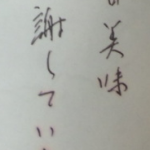 美味
謝してい